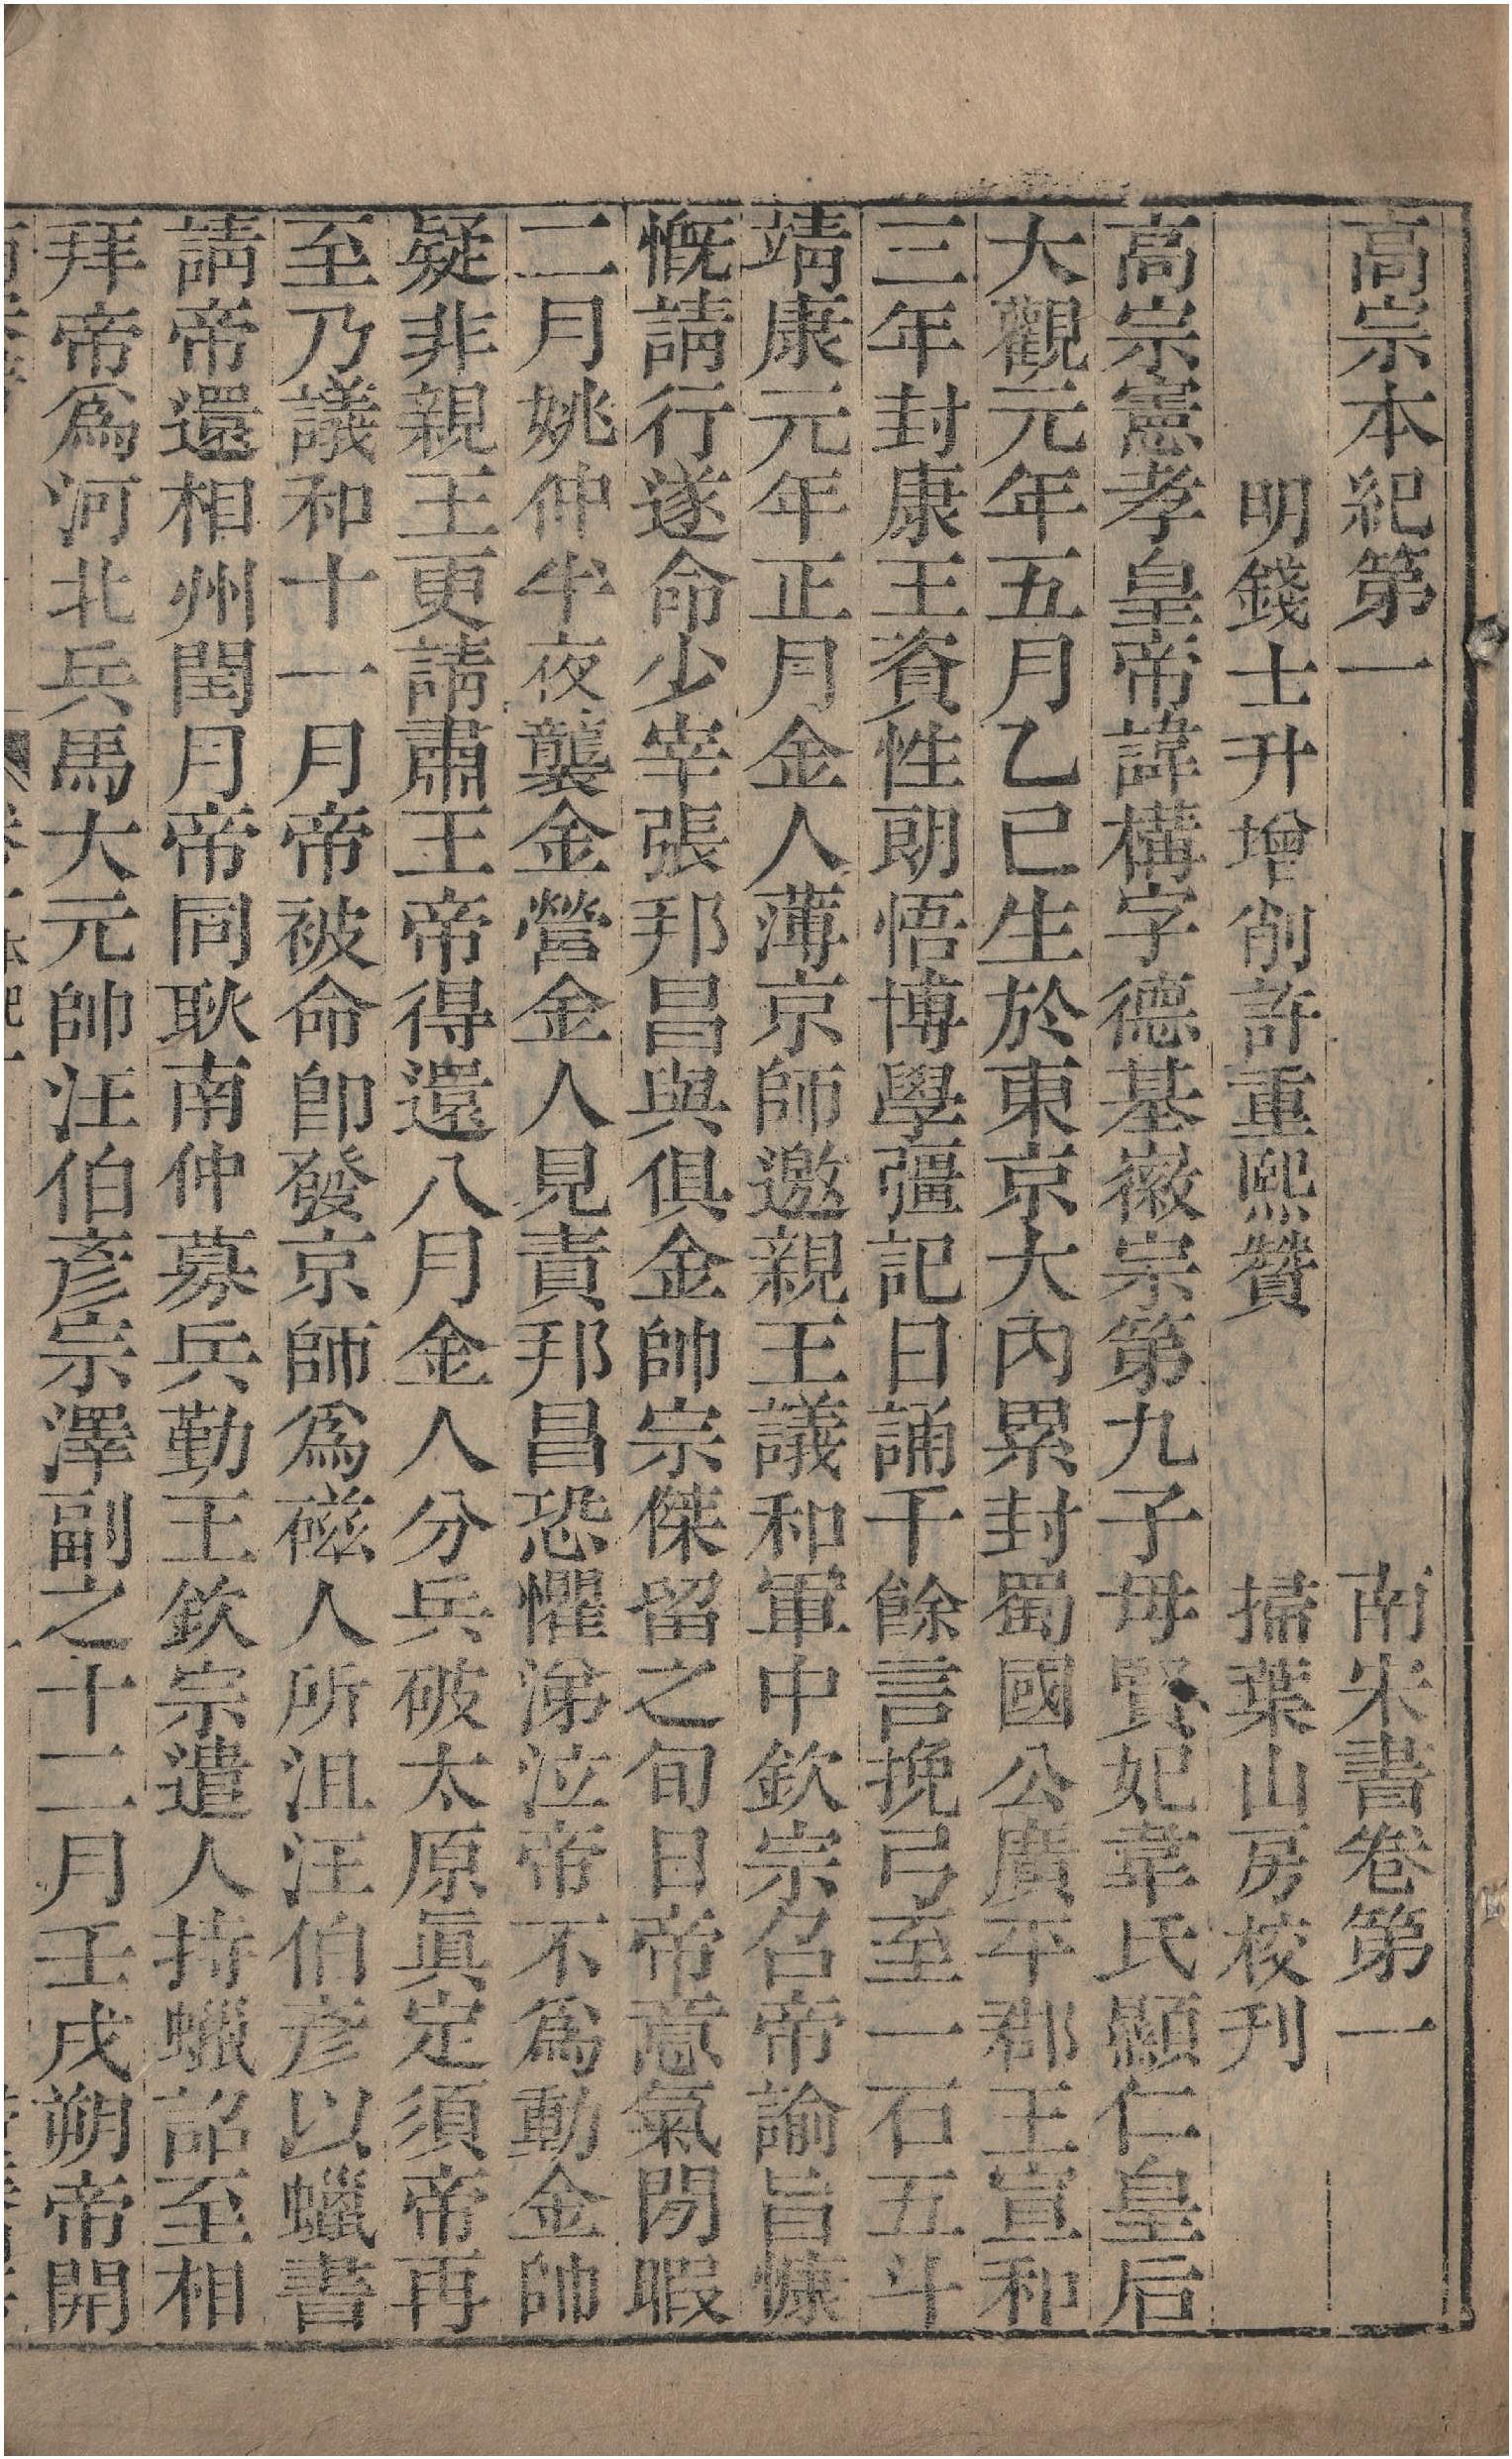 高宗本紀第一 南宋書卷第一
明錢士升增削許重熙贊 掃葉山房校刊
高宗憲孝皇帝諱構字德基徽宗第九子母賢妃韋氏顯仁皇后
大觀元年五月乙己生於東京大內累封蜀國公廣平郡王宣和
三年封康王資性朗悟博學彊記日誦千餘言挽弓至一石五斗
靖康元年正月金人薄京師邀親王議和軍中欽宗召帝諭旨慷
慨請行遂命少宰張邦昌與俱金帥宗傑留之旬日帝意氣閒暇
二月姚仲半夜襲金營金人見責邦昌恐懼涕泣帝不爲動金帥
疑非親王更請肅王帝得還八月金人分兵破太原眞定須帝再
至乃議和十一月帝被命卽發京師爲磁人所沮汪伯彥以蠟書
請帝還相州閏月帝同耿南仲募兵勤王欽宗遣人持蠟詔至相
拜帝爲河北兵馬大元帥汪伯彥宗澤副之十二月壬戌朔帝開